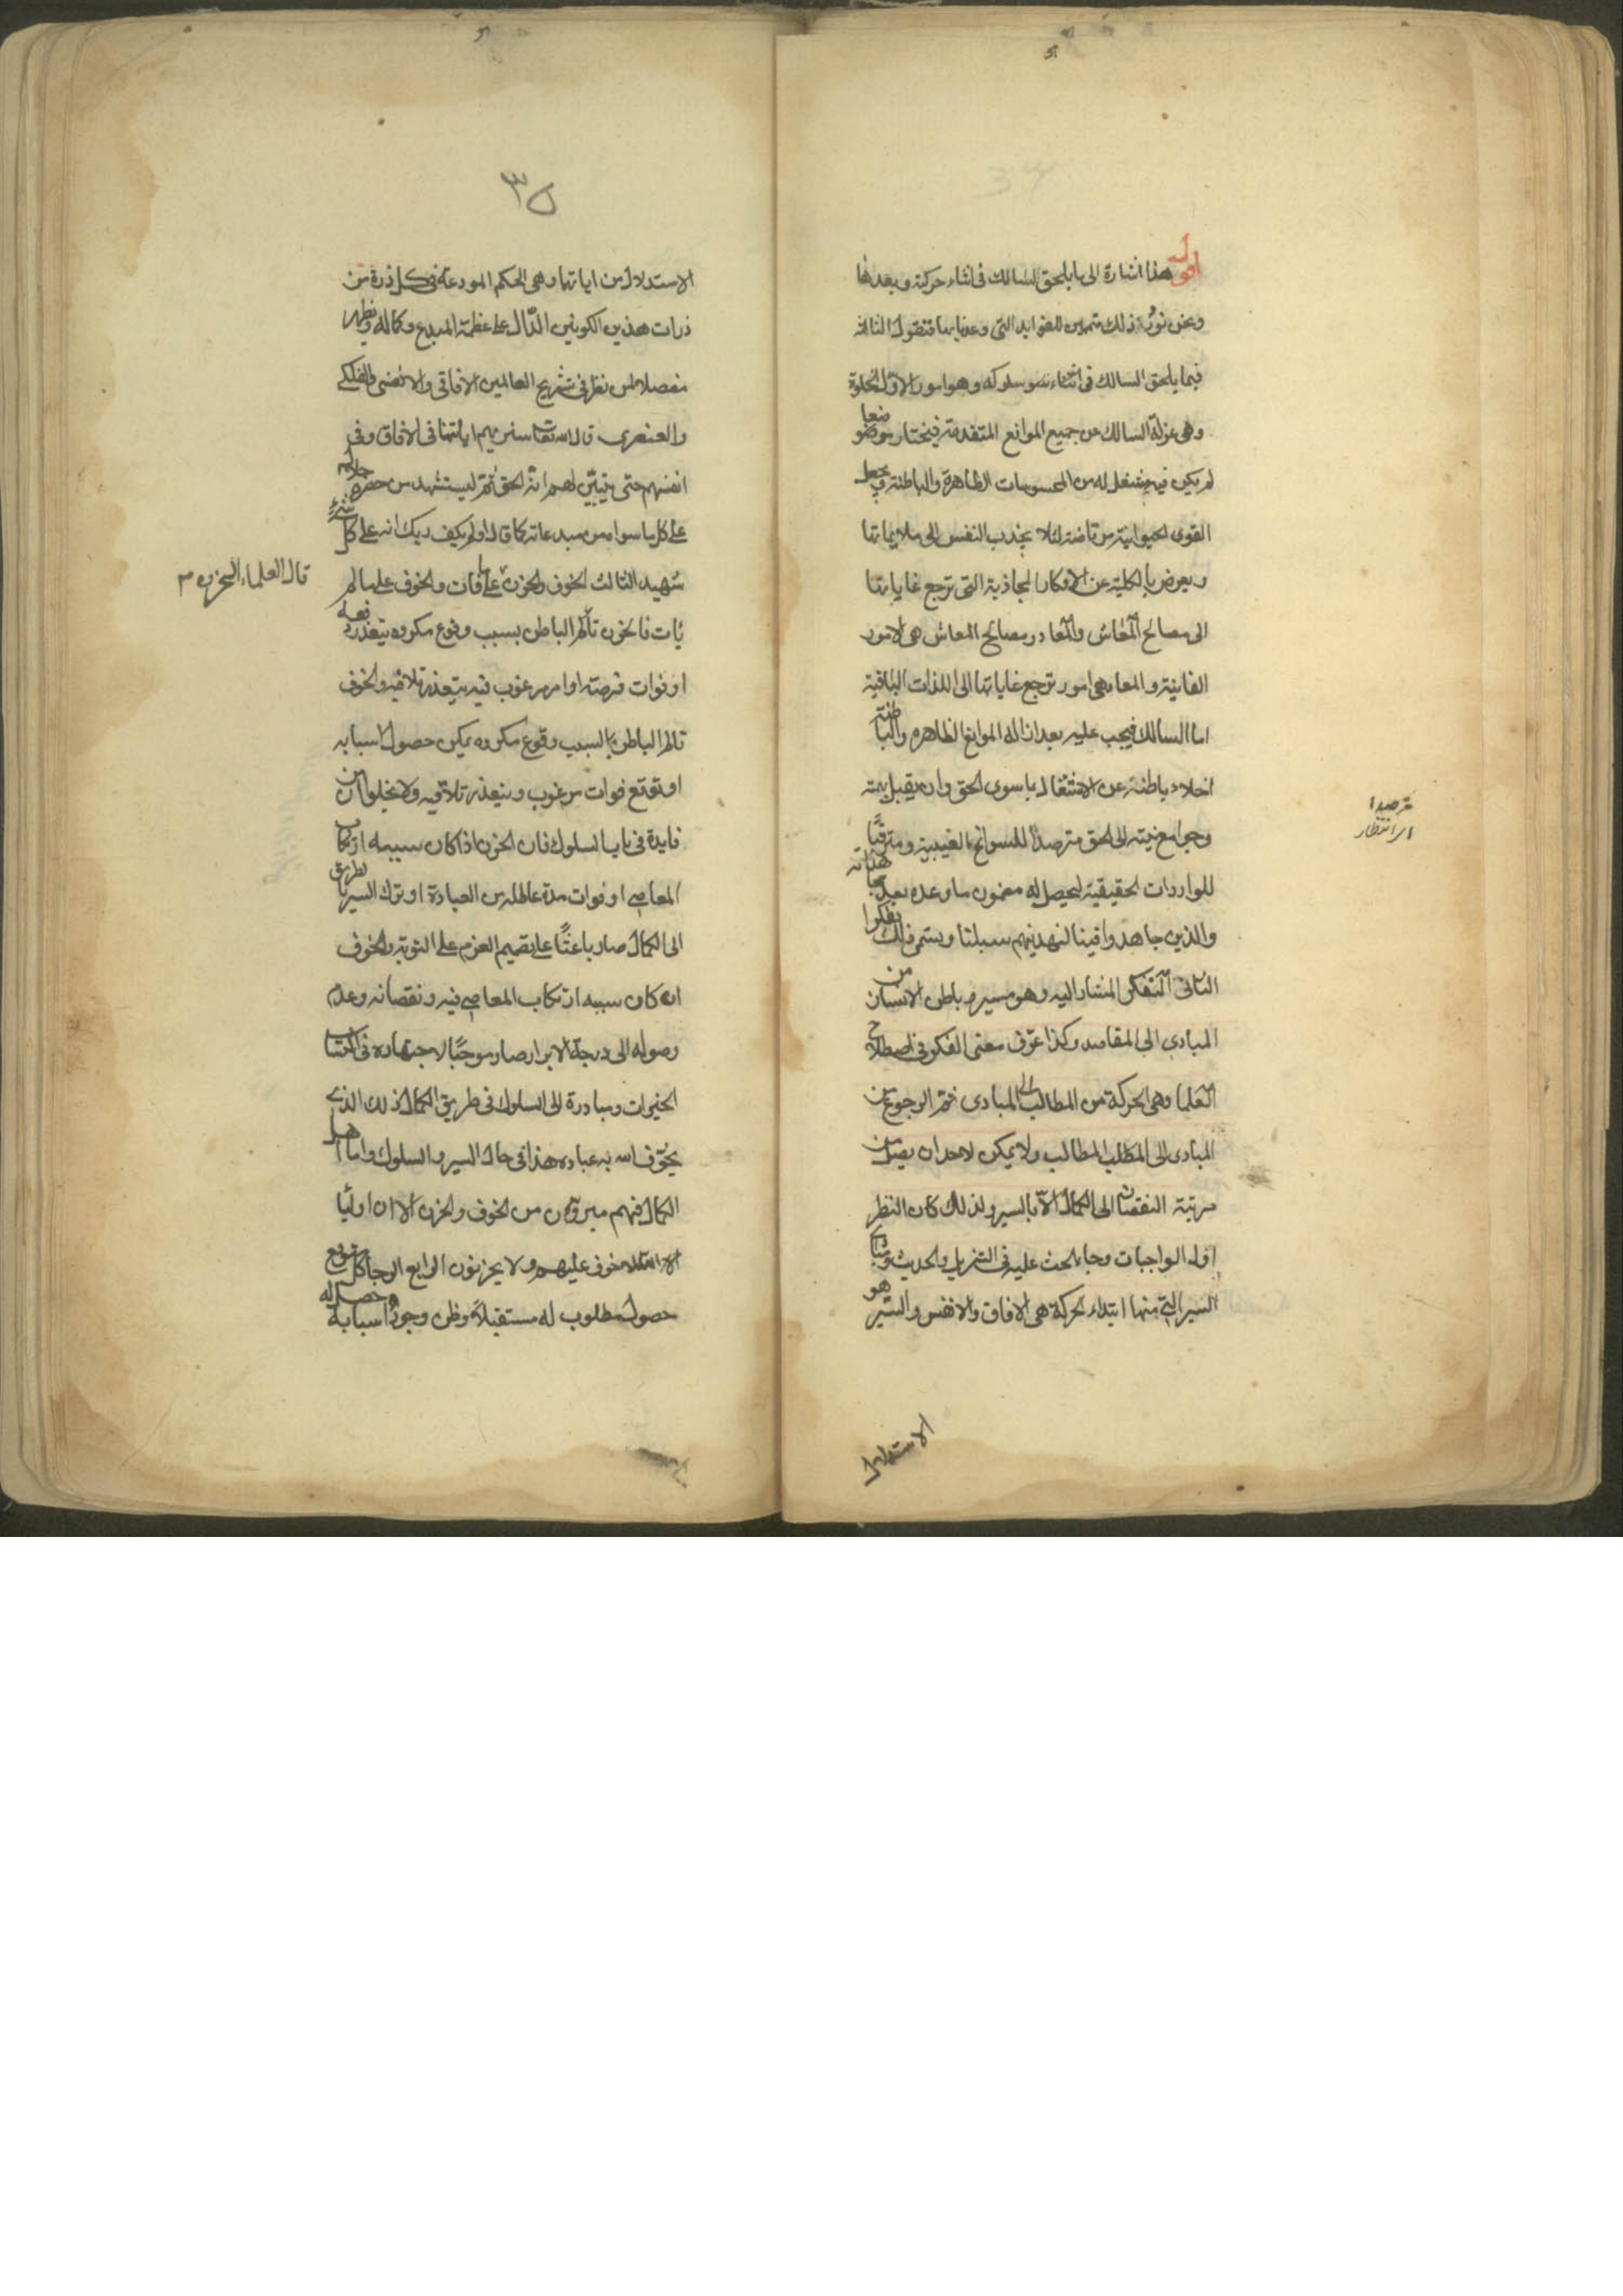 اقول هذا اشارة الى ما يلحق السالك فى اثناء حركته وبعدها
ونحن نورد ذلك متممين للفوايد التى وعدنا بها فنقول الثالثة
فيما يلحق السالك فى اثناء سلوكه وهو امور الاول الخلوة
وهى عزلة السالك عن جميع الموانع المتقدمة فيختار موضعا
لم يكن فيه مشغل له من المحسوسات الظاهرة والباطنة ويجعل
القوى الحيوانية مرتاضة لئلا يجذب النفس الى ملايماتها
ويعرض بالكلية عن الافكار المجاذبة التى ترجع غاياتها
الى مصالح المعاش والمعاد ومصالح المعاش هى الامور
الفانية والمعاد هى امور ترجع غاياتها الى اللذات الباقية
اما السالك فيجب عليه بعد ازالة الموانع الظاهره والباطنة
اخلاء باطنه عن الاشتغال بما سوى الحق وان يقبل بهمته
وجوامع نيته الى الحق مترصدا للسوانح الغيبية ومترقبا
للواردات الحقيقية ليحصل له مضمون ما وعده بعد هدايته
والذين جاهدوا فينا لنهدينهم سبلنا ويسمى ذلك تفكرا
الثانى التفكر المشار اليه وهو سير باطن الانسان من
المبادى الى المقاصد وكذا عرف معنى الفكر فى اصطلاح
العلما وهى الحركة من المطالب الى المبادى ثم الرجوع من
المبادى الى المطالب ولا يمكن لاحد ان يصل من
مرتبة النقصان الى الكمال الا بالسير ولذلك كان النظر
اول الواجبات وجاء الحث عليه فى التنزيل والحديث
السير التى منها ابتداء الحركة هى الافاق والانفس والسير هو
الاستدلال
مترصدا
اى انتظار
٣٥
الاستدلال من اياتها وهى الحكم المودعة فى كل ذرة من
ذرات هذين الكونين الدال على عظمة المبدع وكماله ويظهر
مفصلا لمن نظر فى تشريح العالمين الافاقى والانفسى والفلكى
والعنصرى قال الله تعالى سنريهم اياتنا فى الافاق وفى
انفسهم حتى يتبين لهم انه الحق ثم ليستشهد من حضرة جلاله
على كل ما سواه من مبدعاته كما قال اولم يكف بربك انه على كل شىء
شهيد الثالث الخوف والحزن قال العلماء الحزن على ما فات والخوف على ما لم
يأت فالحزن تألم الباطن بسبب وقوع مكروه يتعذر دفعه
او فوات فرصة او امر مرغوب فيه يتعذر تلافيه والخوف
تألم الباطن بسبب وقوع مكروه يمكن حصول اسبابه
او توقع فوات مرغوب ويتعذر تلافيه ولا يخلوان من
فايدة فى باب السلوك فان الحزن اذا كان سببه ارتكاب
المعاصى او فوات مدة عاطلة من العبادة او ترك السير بطريق
الى الكمال صار باعثا على تصميم العزم على التوبة والخوف
ان كان سببه ارتكاب المعاصى فيه ونقصانه وعدم
وصوله الى درجة الابرار صار موجبا لاجتهاده فى اكتساب
الخيرات ومبادرة الى السلوك فى طريق الكمال ذلك الذى
يخوف الله به عباده هذا فى حال السير والسلوك واما اهل
الكمال فهم مبرؤن من الخوف والحزن الا ان اوليا
الله لا خوف عليهم ولا يحزنون الرابع الرجا كل متوقع
حصول مطلوب له مستقبلا وظن وجود اسبابه حصل له